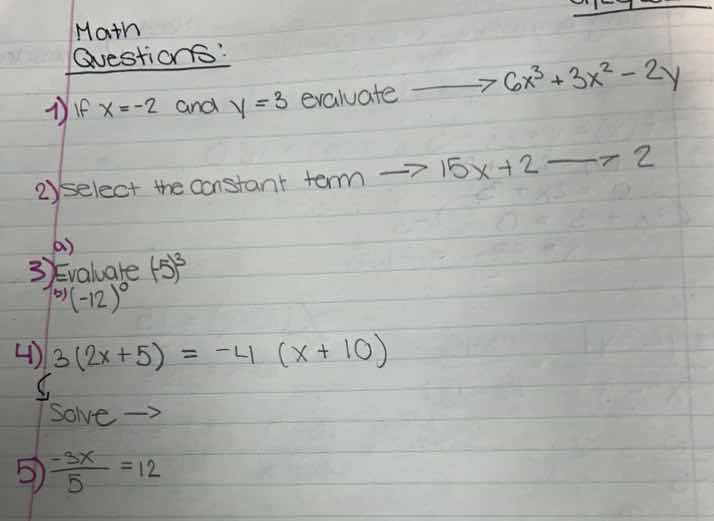 Math
Questions:
1) If x = -2 and y = 3 evaluate → 6x³ + 3x² - 2y
2) select the constant term → 15x + 2 → 2
a)
3) Evaluate (-5)³
b) (-12)⁰
4) 3(2x + 5) = -4 (x + 10)
Solve →
5) -3x/5 = 12